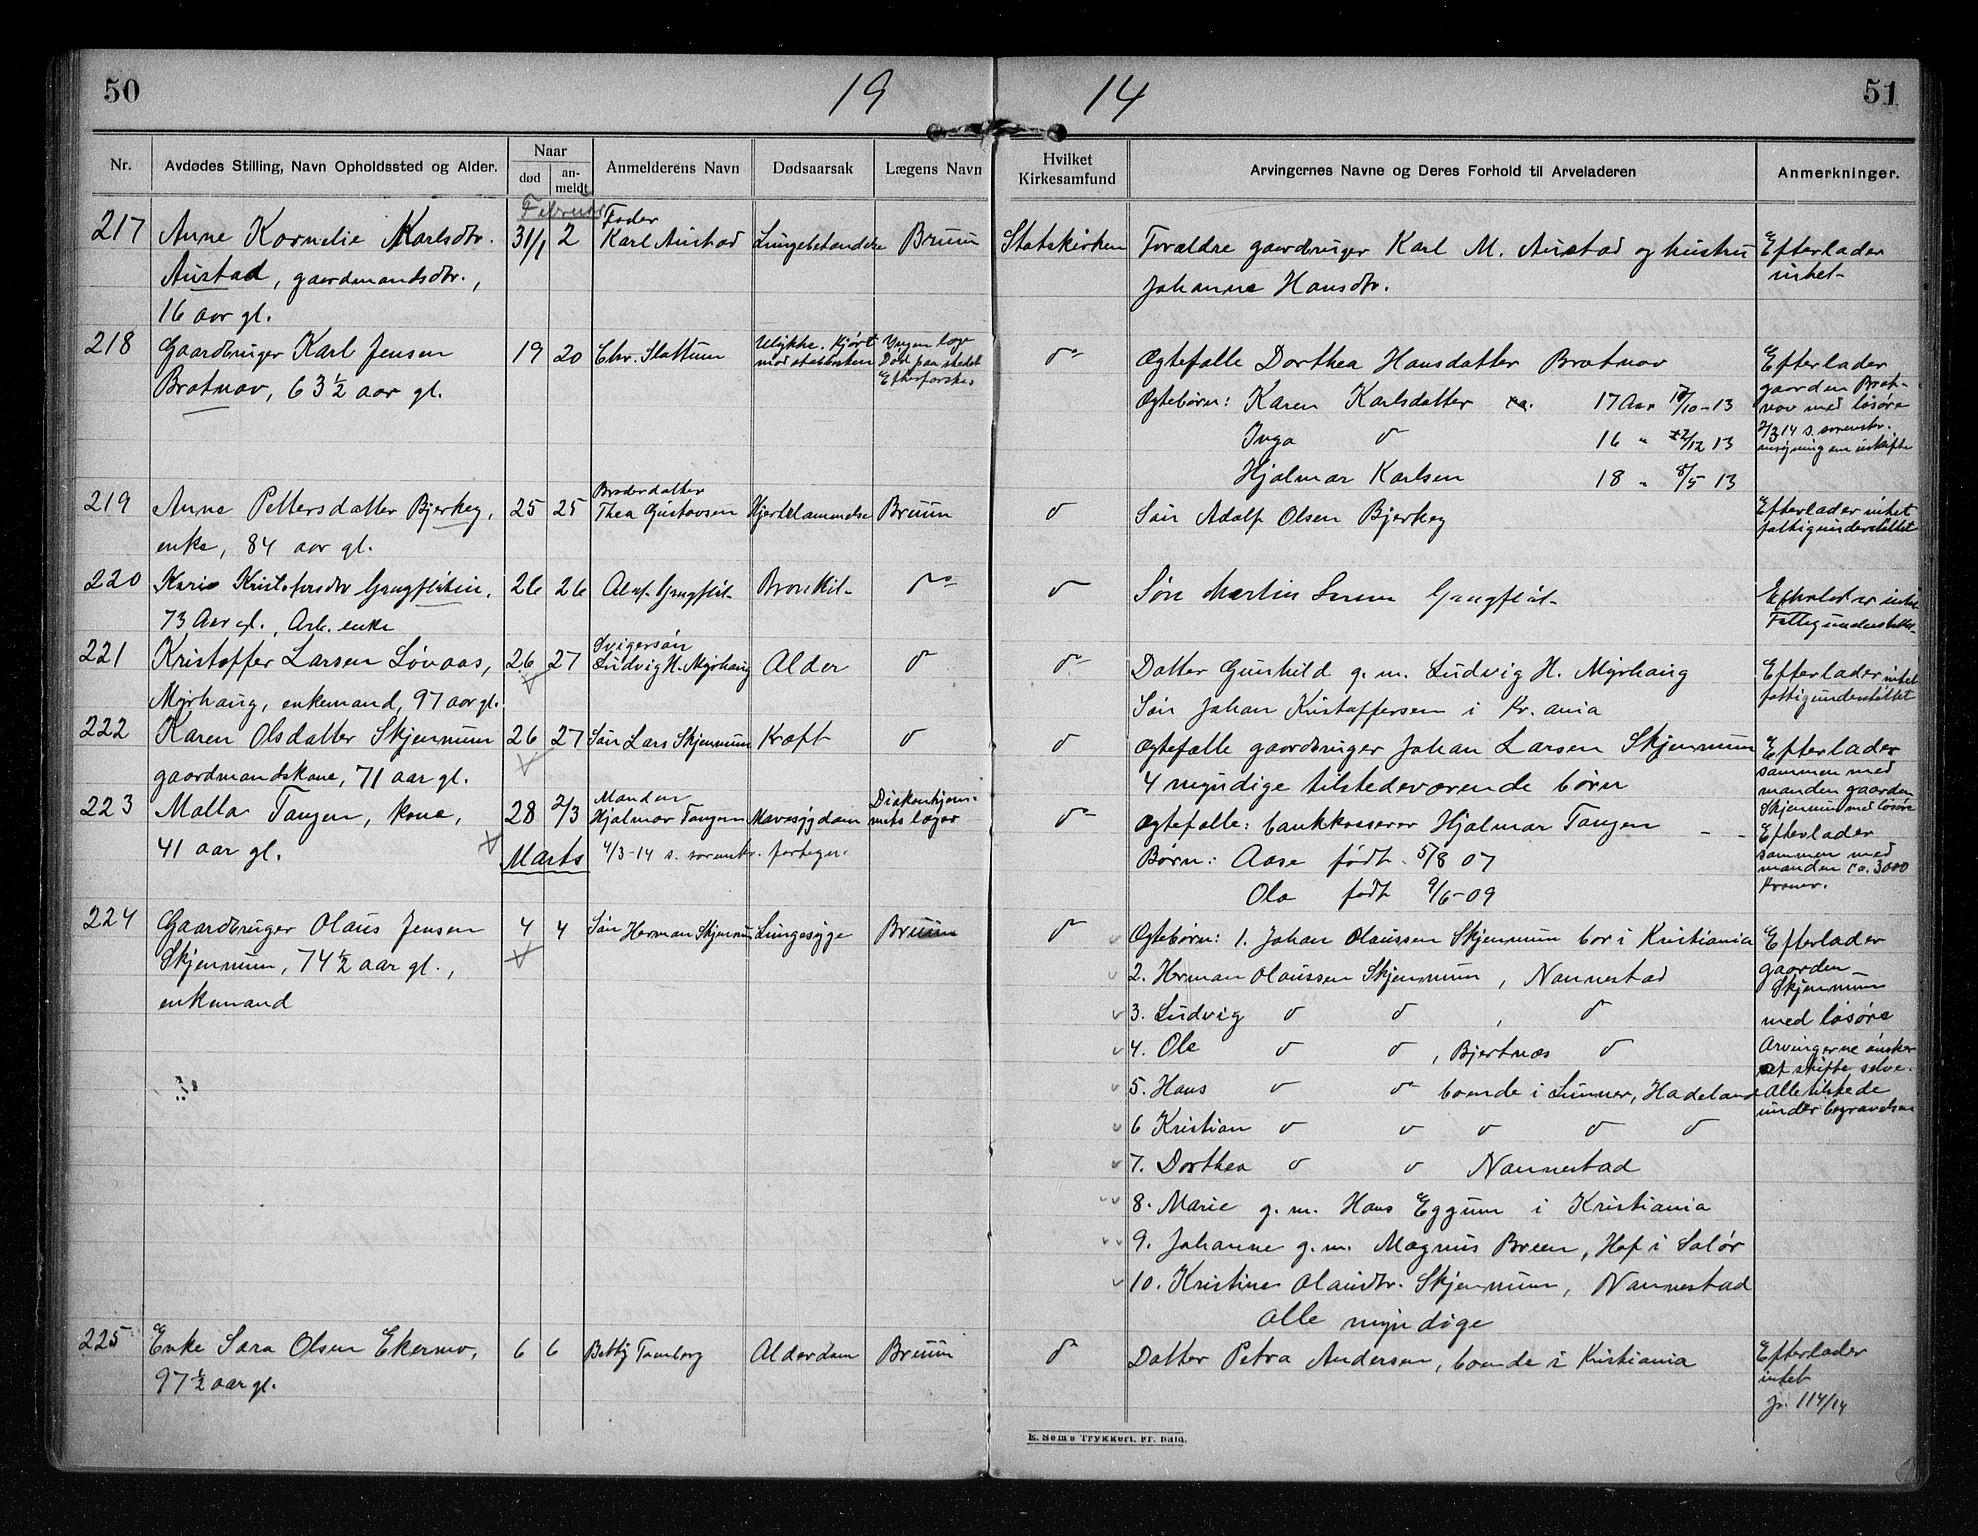 50
19
14
51
Nr.
Avdødes Stilling, Navn Opholdssted og Alder.
Naar
død
an-
meldt
Anmelderens Navn
Dødsaarsak
Lægens Navn
Hvilket
Kirkesamfund
Arvingernes Navne og Deres Forhold til Arveladeren
Anmerkninger.
Februar
217 Anne Kornelie Karlsdtr. 31/1 2 Fader Karl Austad Lungebetændelse Bruun Statskirken Forældre gaardbruger Karl M. Austad og hustru Efterlader
Austad, gaardmandsdtr., Johanne Hansdtr. intet-
16 aar gl.
218 Gaardbruger Karl Jensen 19 20 Chr. Slattum Ulykke. Kjørt Ingen læge do Ægtefælle Dorthea Hansdatter Bratnov Efterlader
Bratnov, 63½ aar gl. mot Død paa stedet gaarden Brat-
Efterforskes
Ægtebørn: Karen Karlsdatter 17 Aar 10-13 nov med løsøre
Inga do 16 " 22/12 13 2/3 14 s.
Hjalmar Karlsen 18 " 8/5 13
219 Anne Pettersdatter Bjerkey, 25 25 Broderdatter Thea Gustavsen Hjertelammelse Bruun do Søn Adolf Olsen Bjerkey Efterlader intet
enke, 84 aar gl. fattigunderstøttet
220 Kari Kristofersdtr 26 26 do do Søn Martin Efterlader intet
73 Aar gl., Arb. enke
221 Kristoffer Larsen Løvaas, 26 27 Svigersøn Ludvig H. Myrhaug Alder do do Datter Gunhild g. m. Ludvig H. Myrhaug Efterlader intet
Myrhaug, enkemand, 97 aar gl. Søn Johan Kristoffersen i Kr.ania fattigunderstøttet
222 Karen Olsdatter Skjennum 26 27 Søn Lars Skjennum Kræft do do Ægtefælle gaardbruger Johan Larsen Skjennum Efterlader
gaardmandskone, 71 aar gl. 4 myndige tilstedeværende børn sammen med
manden gaarden
Skjennum med løsøre
223 Malla Tangen, kone, 28 2/3 Manden Hjalmar Tangen Mavesygdom Diakonhjem-
mets læger do Ægtefælle: bankkasserer Hjalmar Tangen Efterlader
41 aar gl. Marts 4/3-14 s. sorensk. fortegn. Børn: Aase født 5/8 07 sammen med
manden ca. 3000
Ola født 9/6-09 kroner.
224 Gaardbruger Olaus Jensen 4 4 Søn Herman Skjennum Lungesyge Bruun do Ægtebørn: 1. Johan Olaussen Skjennum bor i Kristiania Efterlader
Skjennum, 74½ aar gl., 2. Herman Olaussen Skjennum, Nannestad gaarden
Skjennum
enkemand 3. Ludvig do do , do med løsøre
4. Ole do do , Bjertnæs do Arvingerne ønsker
at skifte selv.
5. Hans do do boende i Lunner, Hadeland Alle tilstede
under begravelsen
6 Kristian do do do do do
7. Dorthea do do Nannestad
8. Marie g. m. Hans Eggum i Kristiania
9. Johanne g. m. Magnus Breen, Hof i Solør
10. Kristine Olausdtr. Skjennum, Nannestad
alle myndige
225 Enke Sara Olsen Ekermo, 6 6 Betty Tomberg Alderdom Bruun do Datter Petra Andersen, boende i Kristiania Efterlader
97½ aar gl. intet
jr. 114/14
E. Sem's Trykkeri, Fr.hald.